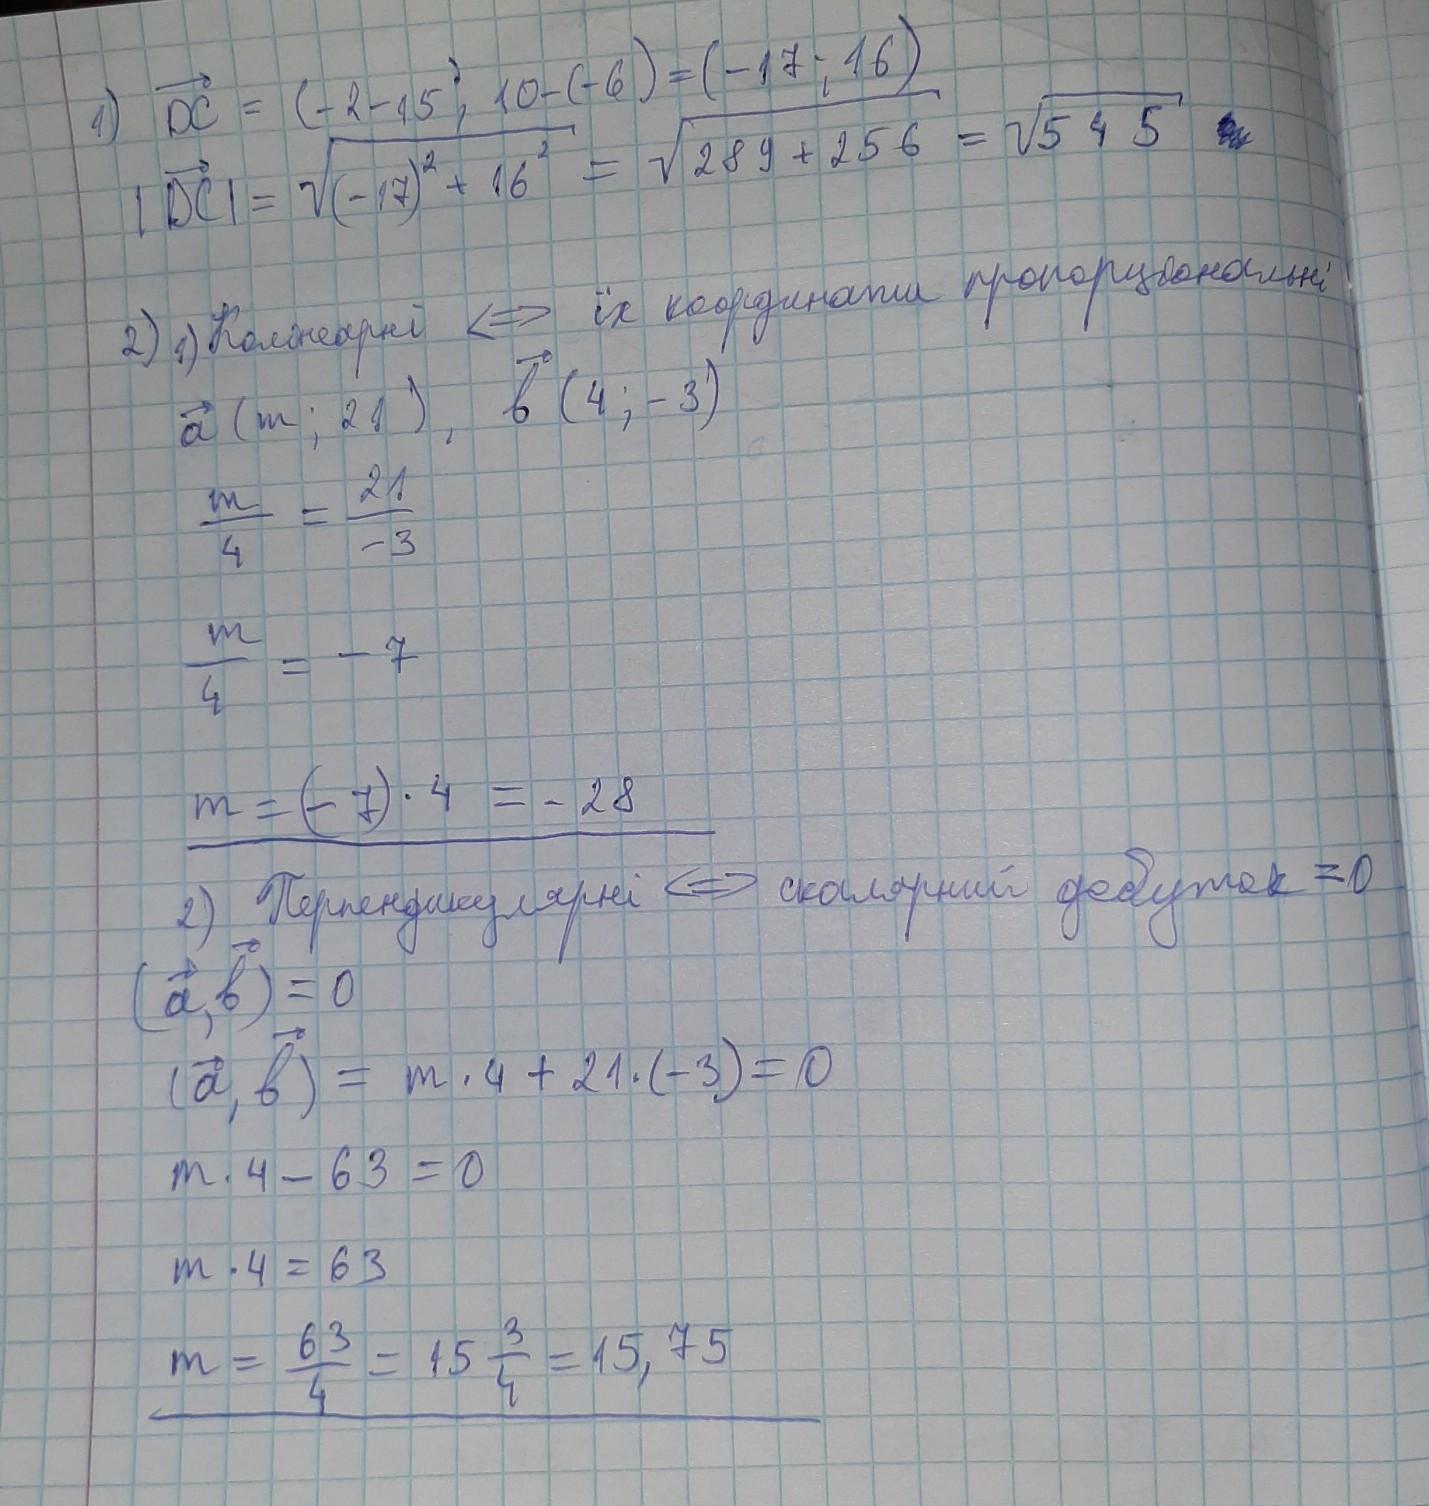 1) DC = (-2-15; 10-(-6)) = (-17; 16)
|DC| = √(-17)² + 16² = √289 + 256 = √545
2) 1) Колінеарні <=> їх координати пропорціональні
a (m; 21), b (4; -3)
m/4 = 21/-3
m/4 = -7
m = (-7) · 4 = -28
2) Перпендикулярні <=> скалярний добуток = 0
(a, b) = 0
(a, b) = m · 4 + 21 · (-3) = 0
m · 4 - 63 = 0
m · 4 = 63
m = 63/4 = 15 3/4 = 15,75